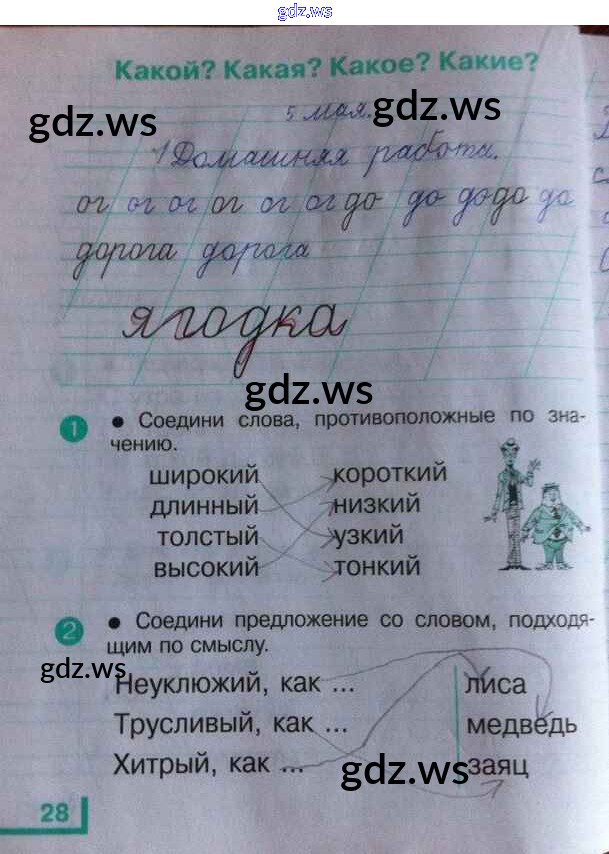 gdz.ws
Какой? Какая? Какое? Какие?
gdz.ws
gdz.ws
5 мая.
Домашняя работа.
ог ог ог ог ог ог до до до до до
дорога дорога
ягодка
gdz.ws
1 • Соедини слова, противоположные по зна-
чению.
широкий короткий
длинный низкий
толстый узкий
высокий тонкий
2 • Соедини предложение со словом, подходя-
щим по смыслу.
gdz.ws
Неуклюжий, как ... лиса
Трусливый, как ... медведь
Хитрый, как ... заяц
gdz.ws
28